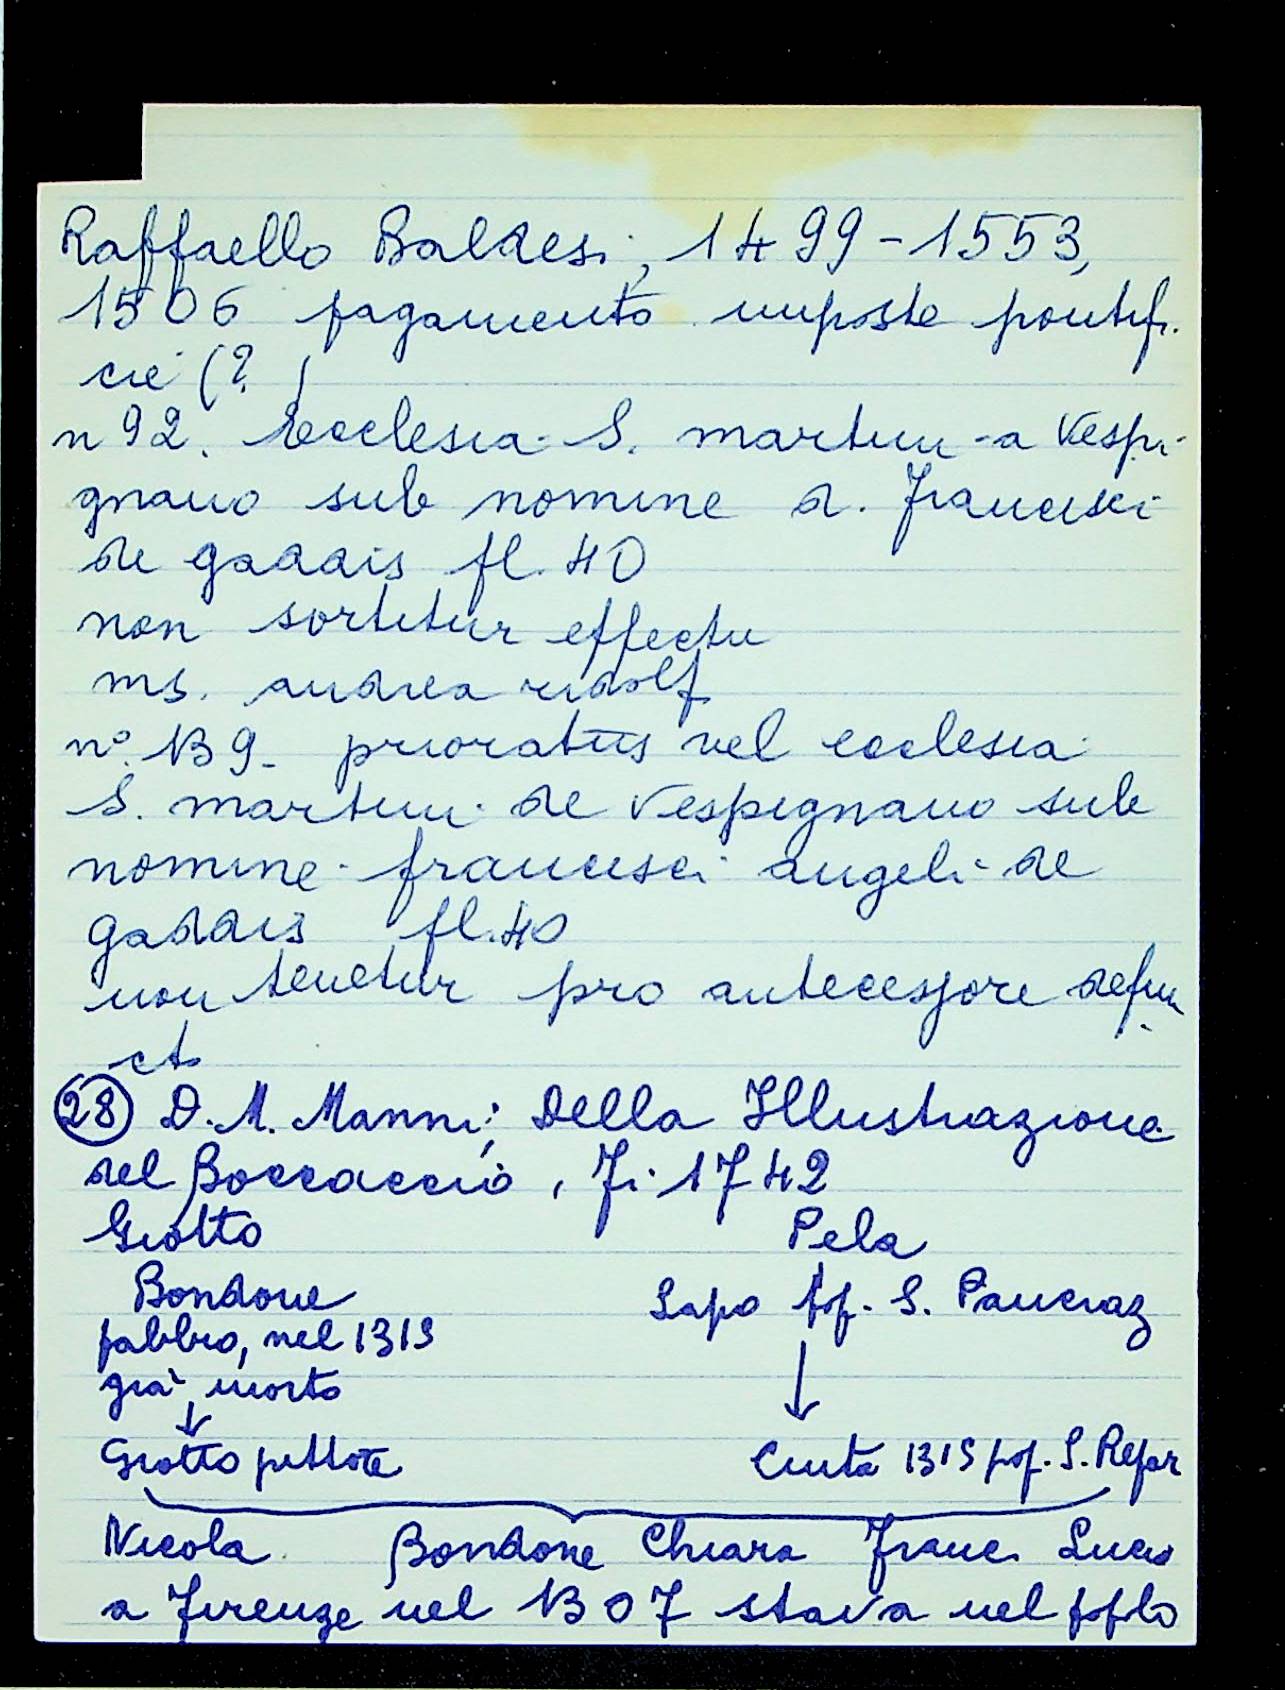 Raffaello Baldesi, 1499-1553,
1506 pagamento imposte pontifi-
cie (? )
n 92. Ecclesia S. martini a Vespi-
gnano sub nomine d. Francisci
de gaddis fl. 40
non sortitur effectu
ms. andrea ridolf
n° 139- prioratus vel ecclesia
S. martini de Vespignano sub
nomine francisci angeli de
gaddis fl. 40
non tenetur pro antecessore defun
cto
(28) D. M. Manni, Della Illustrazione
del Boccaccio, Fi. 1742
Giotto Pela
Bondone Lapo pop. S. Pancraz
fabbro, nel 1319
già morto
Giotto pittore Ciuta 1319 pop. S. Repar
Nicola Bondone Chiara Franc. Lucia
a Firenze nel 1307 stava nel popolo